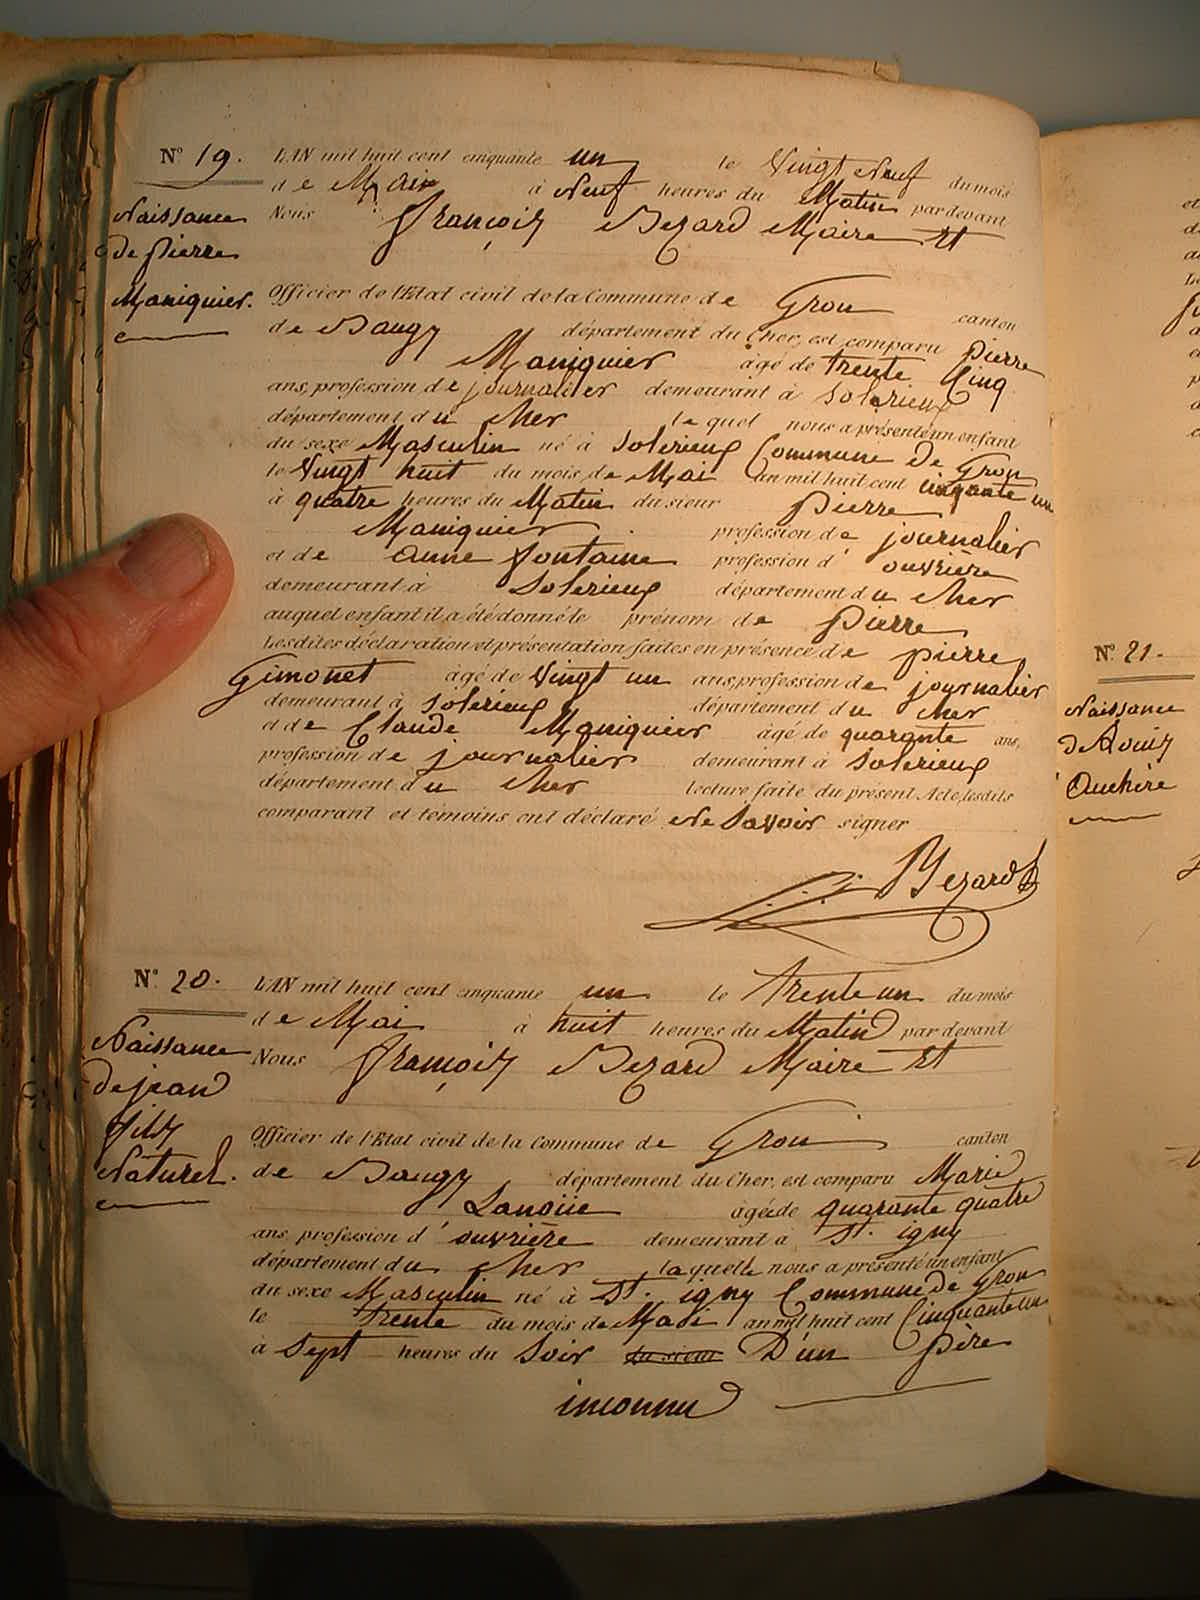 N° 19. L'AN mil huit cent cinquante un le Vingt Neuf du mois
de Mai à Neuf heures du Matin par devant
Naissance Nous François Bezard Maire Et
de pierre
Maniquier. Officier de l'Etat civil de la Commune de Gron canton
de Baugy département du Cher, est comparu pierre
Maniquier âgé de trente Cinq
ans, profession de journalier demeurant à Solerieux
département du Cher le quel nous a présenté un enfant
du sexe Masculin né à Solerieux Commune de Gron
le Vingt huit du mois de Mai an mil huit cent cinquante un
à quatre heures du Matin du sieur pierre
Maniquier profession de journalier
et de anne fontaine profession d' ouvrière
demeurant à Solerieux département du Cher
auquel enfant il a été donné le prénom de Pierre
Lesdites déclaration et présentation faites en présence de pierre
Gimonet âgé de Vingt un ans, profession de journalier
demeurant à Solerieux département du Cher
et de Claude Maniquier âgé de quarante ans,
profession de journalier demeurant à Solerieux
département du Cher Lecture faite du présent Acte, lesdits
comparant et témoins ont déclaré Ne Savoir signer
Bezard
N° 20. L'AN mil huit cent cinquante un le trente un du mois
de Mai à huit heures du Matin par devant
Naissance Nous François Bezard Maire Et
de jean
fils Officier de l'Etat civil de la Commune de Gron canton
Naturel. de Baugy département du Cher, est comparu Marie
Lanoüe âgée de quarante quatre
ans, profession d' ouvrière demeurant à St. igny
département du Cher laquelle nous a présenté un enfant
du sexe Masculin né à St. igny Commune de Gron
le trente du mois de Mai an mil huit cent Cinquante un
à Sept heures du Soir du sieur D'un père
inconnu
N° 21.
Naissance
de Louis